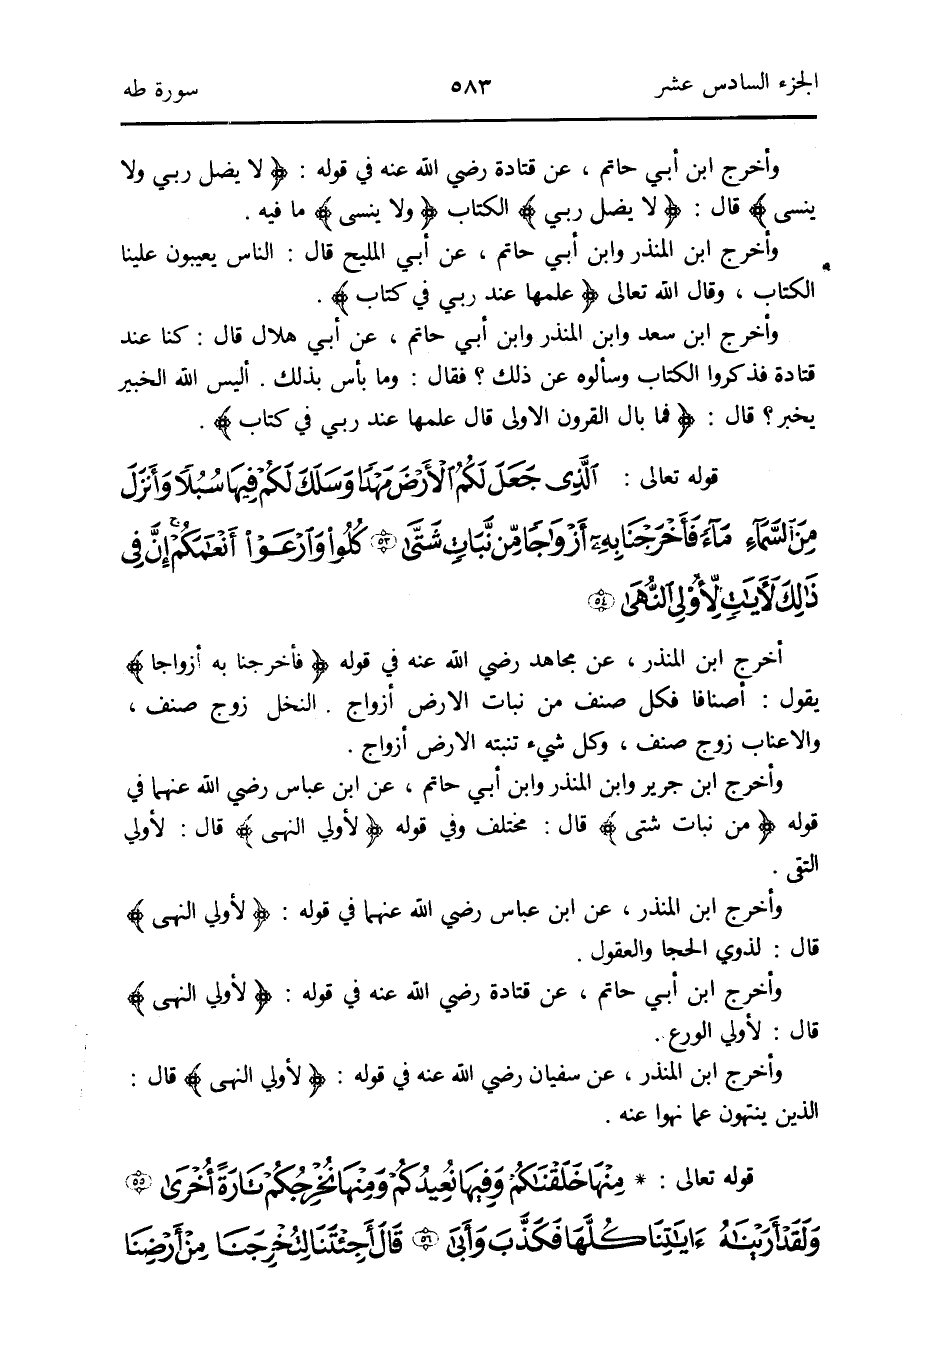 الجزء السادس عشر ٥٨٣ سورة طه
وأخرج ابن أبي حاتم ، عن قتادة رضي الله عنه في قوله : ﴿ لا يضل ربي ولا
ينسى ﴾ قال : ﴿ لا يضل ربي ﴾ الكتاب ﴿ ولا ينسى ﴾ ما فيه .
وأخرج ابن المنذر وابن أبي حاتم ، عن أبي المليح قال : الناس يعيبون علينا
الكتاب ، وقال الله تعالى ﴿ علمها عند ربي في كتاب ﴾ .
وأخرج ابن سعد وابن المنذر وابن أبي حاتم ، عن أبي هلال قال : كنا عند
قتادة فذكروا الكتاب وسألوه عن ذلك ؟ فقال : وما بأس بذلك . أليس الله الخبير
يخبر ؟ قال : ﴿ فما بال القرون الاولى قال علمها عند ربي في كتاب ﴾ .
قوله تعالى : ٱلَّذِى جَعَلَ لَكُمُ ٱلْأَرْضَ مَهْدًا وَسَلَكَ لَكُمْ فِيهَا سُبُلًا وَأَنزَلَ
مِنَ ٱلسَّمَآءِ مَآءً فَأَخْرَجْنَا بِهِۦٓ أَزْوَٰجًا مِّن نَّبَاتٍ شَتَّىٰ ٥٣ كُلُوا۟ وَٱرْعَوْا۟ أَنْعَٰمَكُمْ ۚ إِنَّ فِى
ذَٰلِكَ لَءَايَٰتٍ لِّأُو۟لِى ٱلنُّهَىٰ ٥٤
أخرج ابن المنذر ، عن مجاهد رضي الله عنه في قوله ﴿ فأخرجنا به أزواجا ﴾
يقول : أصنافا فكل صنف من نبات الارض أزواج . النخل زوج صنف ،
والاعناب زوج صنف ، وكل شيء تنبته الارض أزواج .
وأخرج ابن جرير وابن المنذر وابن أبي حاتم ، عن ابن عباس رضي الله عنهما في
قوله ﴿ من نبات شتى ﴾ قال : مختلف وفي قوله ﴿ لأولي النهى ﴾ قال : لأولي
التقى .
وأخرج ابن المنذر ، عن ابن عباس رضي الله عنهما في قوله : ﴿ لأولي النهى ﴾
قال : لذوي الحجا والعقول .
وأخرج ابن أبي حاتم ، عن قتادة رضي الله عنه في قوله : ﴿ لأولي النهى ﴾
قال : لأولي الورع .
وأخرج ابن المنذر ، عن سفيان رضي الله عنه في قوله : ﴿ لأولي النهى ﴾ قال :
الذين ينتهون عما نهوا عنه .
قوله تعالى : * مِنْهَا خَلَقْنَٰكُمْ وَفِيهَا نُعِيدُكُمْ وَمِنْهَا نُخْرِجُكُمْ تَارَةً أُخْرَىٰ ٥٥
وَلَقَدْ أَرَيْنَٰهُ ءَايَٰتِنَا كُلَّهَا فَكَذَّبَ وَأَبَىٰ ٥٦ قَالَ أَجِئْتَنَا لِتُخْرِجَنَا مِنْ أَرْضِنَا